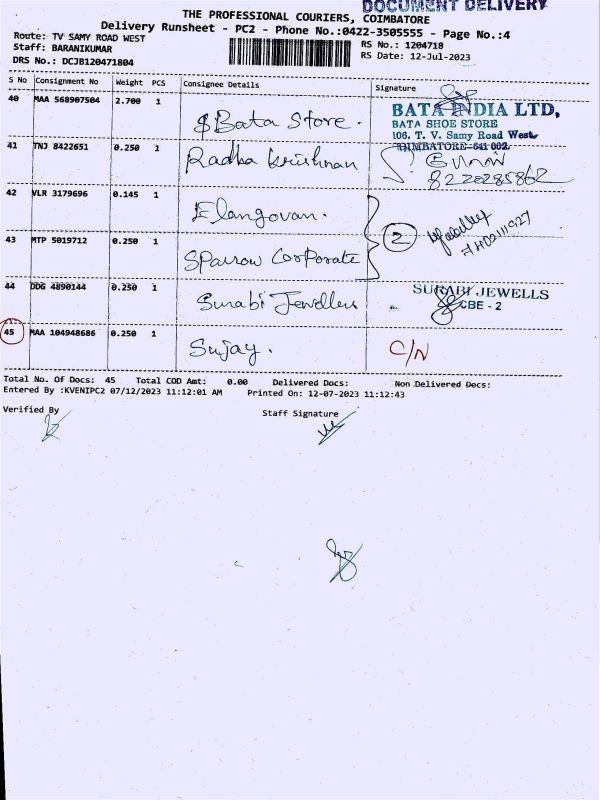 DOCUMENT DELIVERY
THE PROFESSIONAL COURIERS, COIMBATORE
Delivery Runsheet - PC2 - Phone No.:0422-3505555 - Page No.:4
Route: TV SAMY ROAD WEST
RS No.: 1204718
Staff: BARANIKUMAR
RS Date: 12-Jul-2023
DRS No.: DCJB120471804
S No Consignment No Weight PCS Consignee Details Signature
40 MAA 568907504 2.700 1 Bata Store.
BATA INDIA LTD,
BATA SHOE STORE
106, T. V. Samy Road West
COIMBATORE-641 002
41 TNJ 8422651 0.250 1 Radha Krishnan
8220285862
42 VLR 3179696 0.145 1 Elangovan.
2
43 MTP 5019712 0.250 1 Sparrow Corporate
44 DDG 4890144 0.250 1 Surabi Jewellers
SURABI JEWELLS
CBE - 2
45 MAA 104948686 0.250 1 Sujay. C/N
Total No. Of Docs: 45 Total COD Amt: 0.00 Delivered Docs: Non Delivered Docs:
Entered By :KVENIPC2 07/12/2023 11:12:01 AM Printed On: 12-07-2023 11:12:43
Verified By Staff Signature